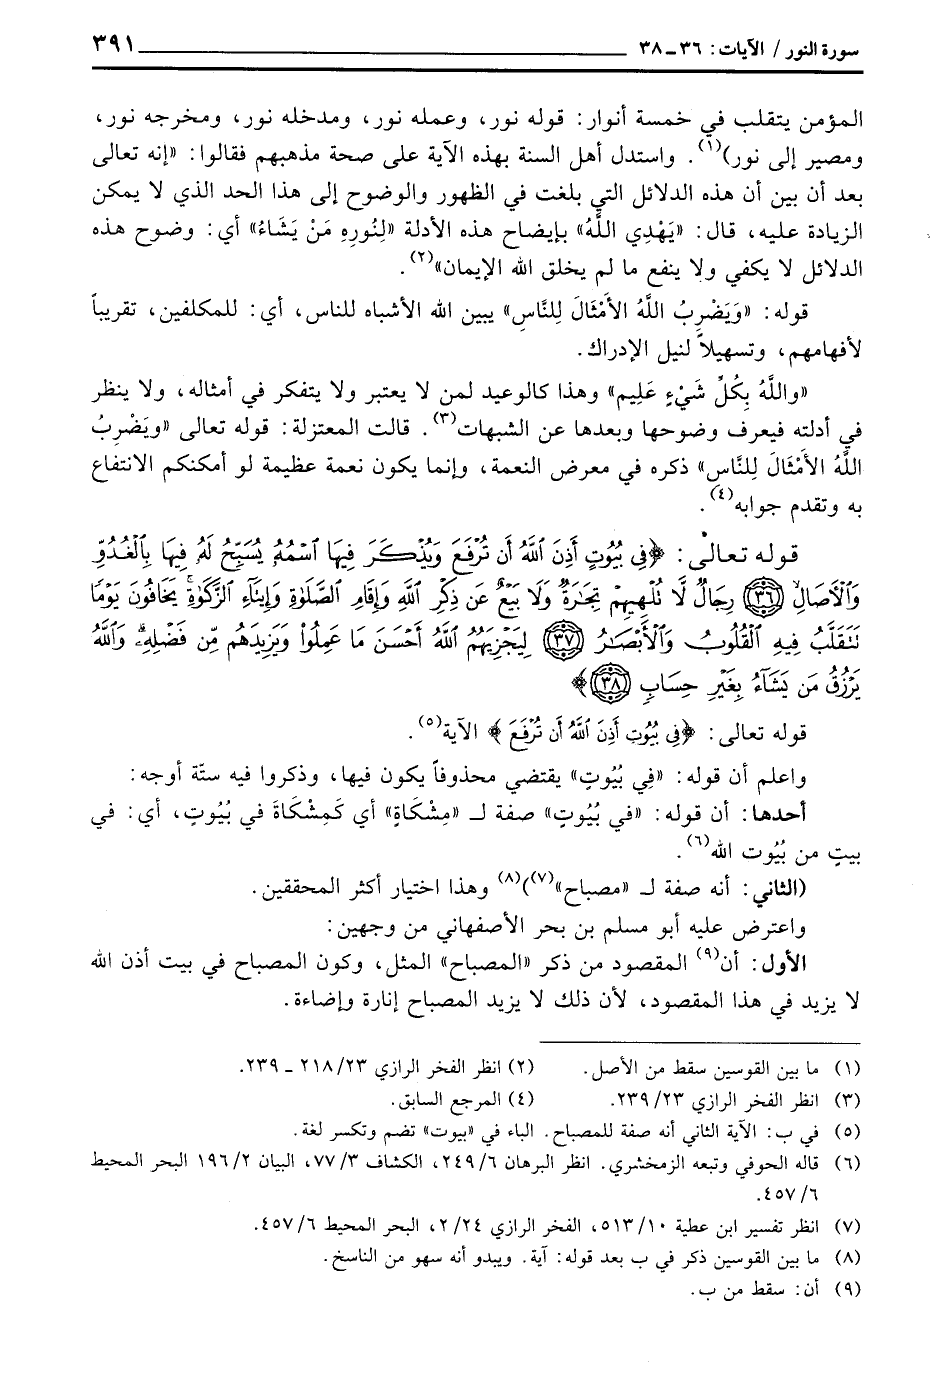 سورة النور / الآيات: ٣٦ ـ ٣٨ ٣٩١
المؤمن يتقلب في خمسة أنوار: قوله نور، وعمله نور، ومدخله نور، ومخرجه نور،
ومصير إلى نور)(١). واستدل أهل السنة بهذه الآية على صحة مذهبهم فقالوا: «إنه تعالى
بعد أن بين أن هذه الدلائل التي بلغت في الظهور والوضوح إلى هذا الحد الذي لا يمكن
الزيادة عليه، قال: «يَهْدِي اللَّهُ» بإيضاح هذه الأدلة «لِنُورِهِ مَنْ يَشَاءُ» أي: وضوح هذه
الدلائل لا يكفي ولا ينفع ما لم يخلق الله الإيمان»(٢).
قوله: «وَيَضْرِبُ اللَّهُ الأَمْثَالَ لِلنَّاسِ» يبين الله الأشباه للناس، أي: للمكلفين، تقريباً
لأفهامهم، وتسهيلاً لنيل الإدراك.
«واللَّهُ بِكُلِّ شَيْءٍ عَلِيم» وهذا كالوعيد لمن لا يعتبر ولا يتفكر في أمثاله، ولا ينظر
في أدلته فيعرف وضوحها وبعدها عن الشبهات(٣). قالت المعتزلة: قوله تعالى «ويَضْرِبُ
اللَّهُ الأَمْثَالَ لِلنَّاسِ» ذكره في معرض النعمة، وإنما يكون نعمة عظيمة لو أمكنكم الانتفاع
به وتقدم جوابه(٤).
قوله تعالى: ﴿فِي بُيُوتٍ أَذِنَ ٱللَّهُ أَن تُرْفَعَ وَيُذْكَرَ فِيهَا ٱسْمُهُ يُسَبِّحُ لَهُ فِيهَا بِٱلْغُدُوِّ
وَٱلْآصَالِ (٣٦) رِجَالٌ لَّا تُلْهِيهِمْ تِجَٰرَةٌ وَلَا بَيْعٌ عَن ذِكْرِ ٱللَّهِ وَإِقَامِ ٱلصَّلَوٰةِ وَإِيتَآءِ ٱلزَّكَوٰةِ يَخَافُونَ يَوْمًا
تَتَقَلَّبُ فِيهِ ٱلْقُلُوبُ وَٱلْأَبْصَٰرُ (٣٧) لِيَجْزِيَهُمُ ٱللَّهُ أَحْسَنَ مَا عَمِلُوا۟ وَيَزِيدَهُم مِّن فَضْلِهِۦ وَٱللَّهُ
يَرْزُقُ مَن يَشَآءُ بِغَيْرِ حِسَابٍ (٣٨)﴾
قوله تعالى: ﴿فِي بُيُوتٍ أَذِنَ ٱللَّهُ أَن تُرْفَعَ﴾ الآية(٥).
واعلم أن قوله: «فِي بُيُوتٍ» يقتضي محذوفاً يكون فيها، وذكروا فيه ستّة أوجه:
أحدها: أن قوله: «في بُيُوتٍ» صفة لـ «مِشْكَاةٍ» أي كَمِشْكَاةَ في بُيُوتٍ، أي: في
بيتٍ من بُيُوت الله(٦).
(الثاني: أنه صفة لـ «مصباح»(٧))(٨) وهذا اختيار أكثر المحققين.
واعترض عليه أبو مسلم بن بحر الأصفهاني من وجهين:
الأول: أن(٩) المقصود من ذكر «المصباح» المثل، وكون المصباح في بيت أذن الله
لا يزيد في هذا المقصود، لأن ذلك لا يزيد المصباح إنارة وإضاءة.
(١) ما بين القوسين سقط من الأصل. (٢) انظر الفخر الرازي ٢٣/ ٢١٨ ـ ٢٣٩.
(٣) انظر الفخر الرازي ٢٣/ ٢٣٩. (٤) المرجع السابق.
(٥) في ب: الآية الثاني أنه صفة للمصباح. الباء في «بيوت» تضم وتكسر لغة.
(٦) قاله الحوفي وتبعه الزمخشري. انظر البرهان ٦/ ٢٤٩، الكشاف ٣/ ٧٧، البيان ٢/ ١٩٦ البحر المحيط
٦/ ٤٥٧.
(٧) انظر تفسير ابن عطية ١٠/ ٥١٣، الفخر الرازي ٢٤/ ٢، البحر المحيط ٦/ ٤٥٧.
(٨) ما بين القوسين ذكر في ب بعد قوله: آية. ويبدو أنه سهو من الناسخ.
(٩) أن: سقط من ب.